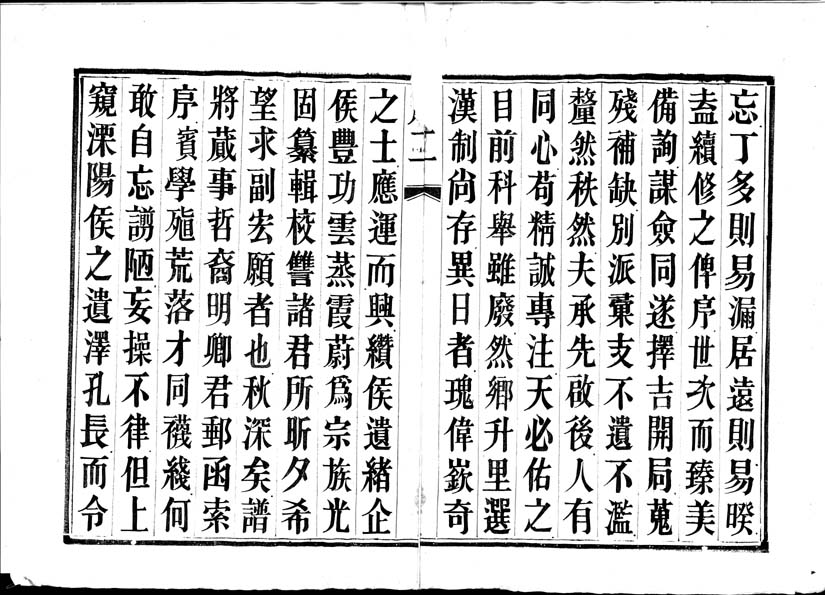 忘丁多則易漏居遠則易暌
盍續修之俾序世次而臻美
備詢謀僉同遂擇吉開局蒐
殘補缺別派彙支不遺不濫
釐然秩然夫承先啟後人有
同心苟精誠專注天必佑之
目前科舉雖廢然鄉升里選
漢制尙存異日者瑰偉嶔奇
二
之士應運而興纘侯遺緒企
侯豐功雲蒸霞蔚爲宗族光
固纂輯校讐諸君所昕夕希
望求副宏願者也秋深矣譜
將蕆事哲裔明卿君郵函索
序賓學殖荒落才同襪綫何
敢自忘譾陋妄操不律但上
窺溧陽侯之遺澤孔長而今